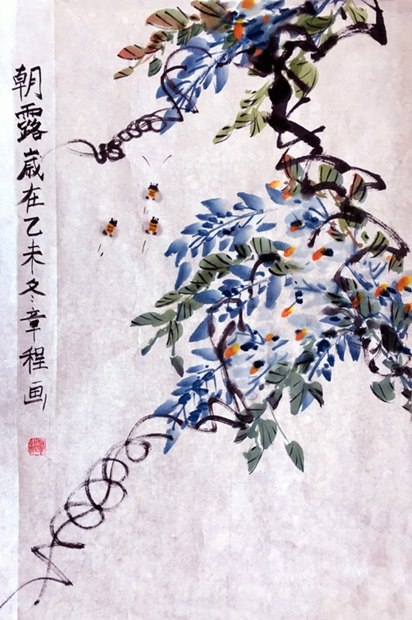 朝露歲在乙未冬章程画